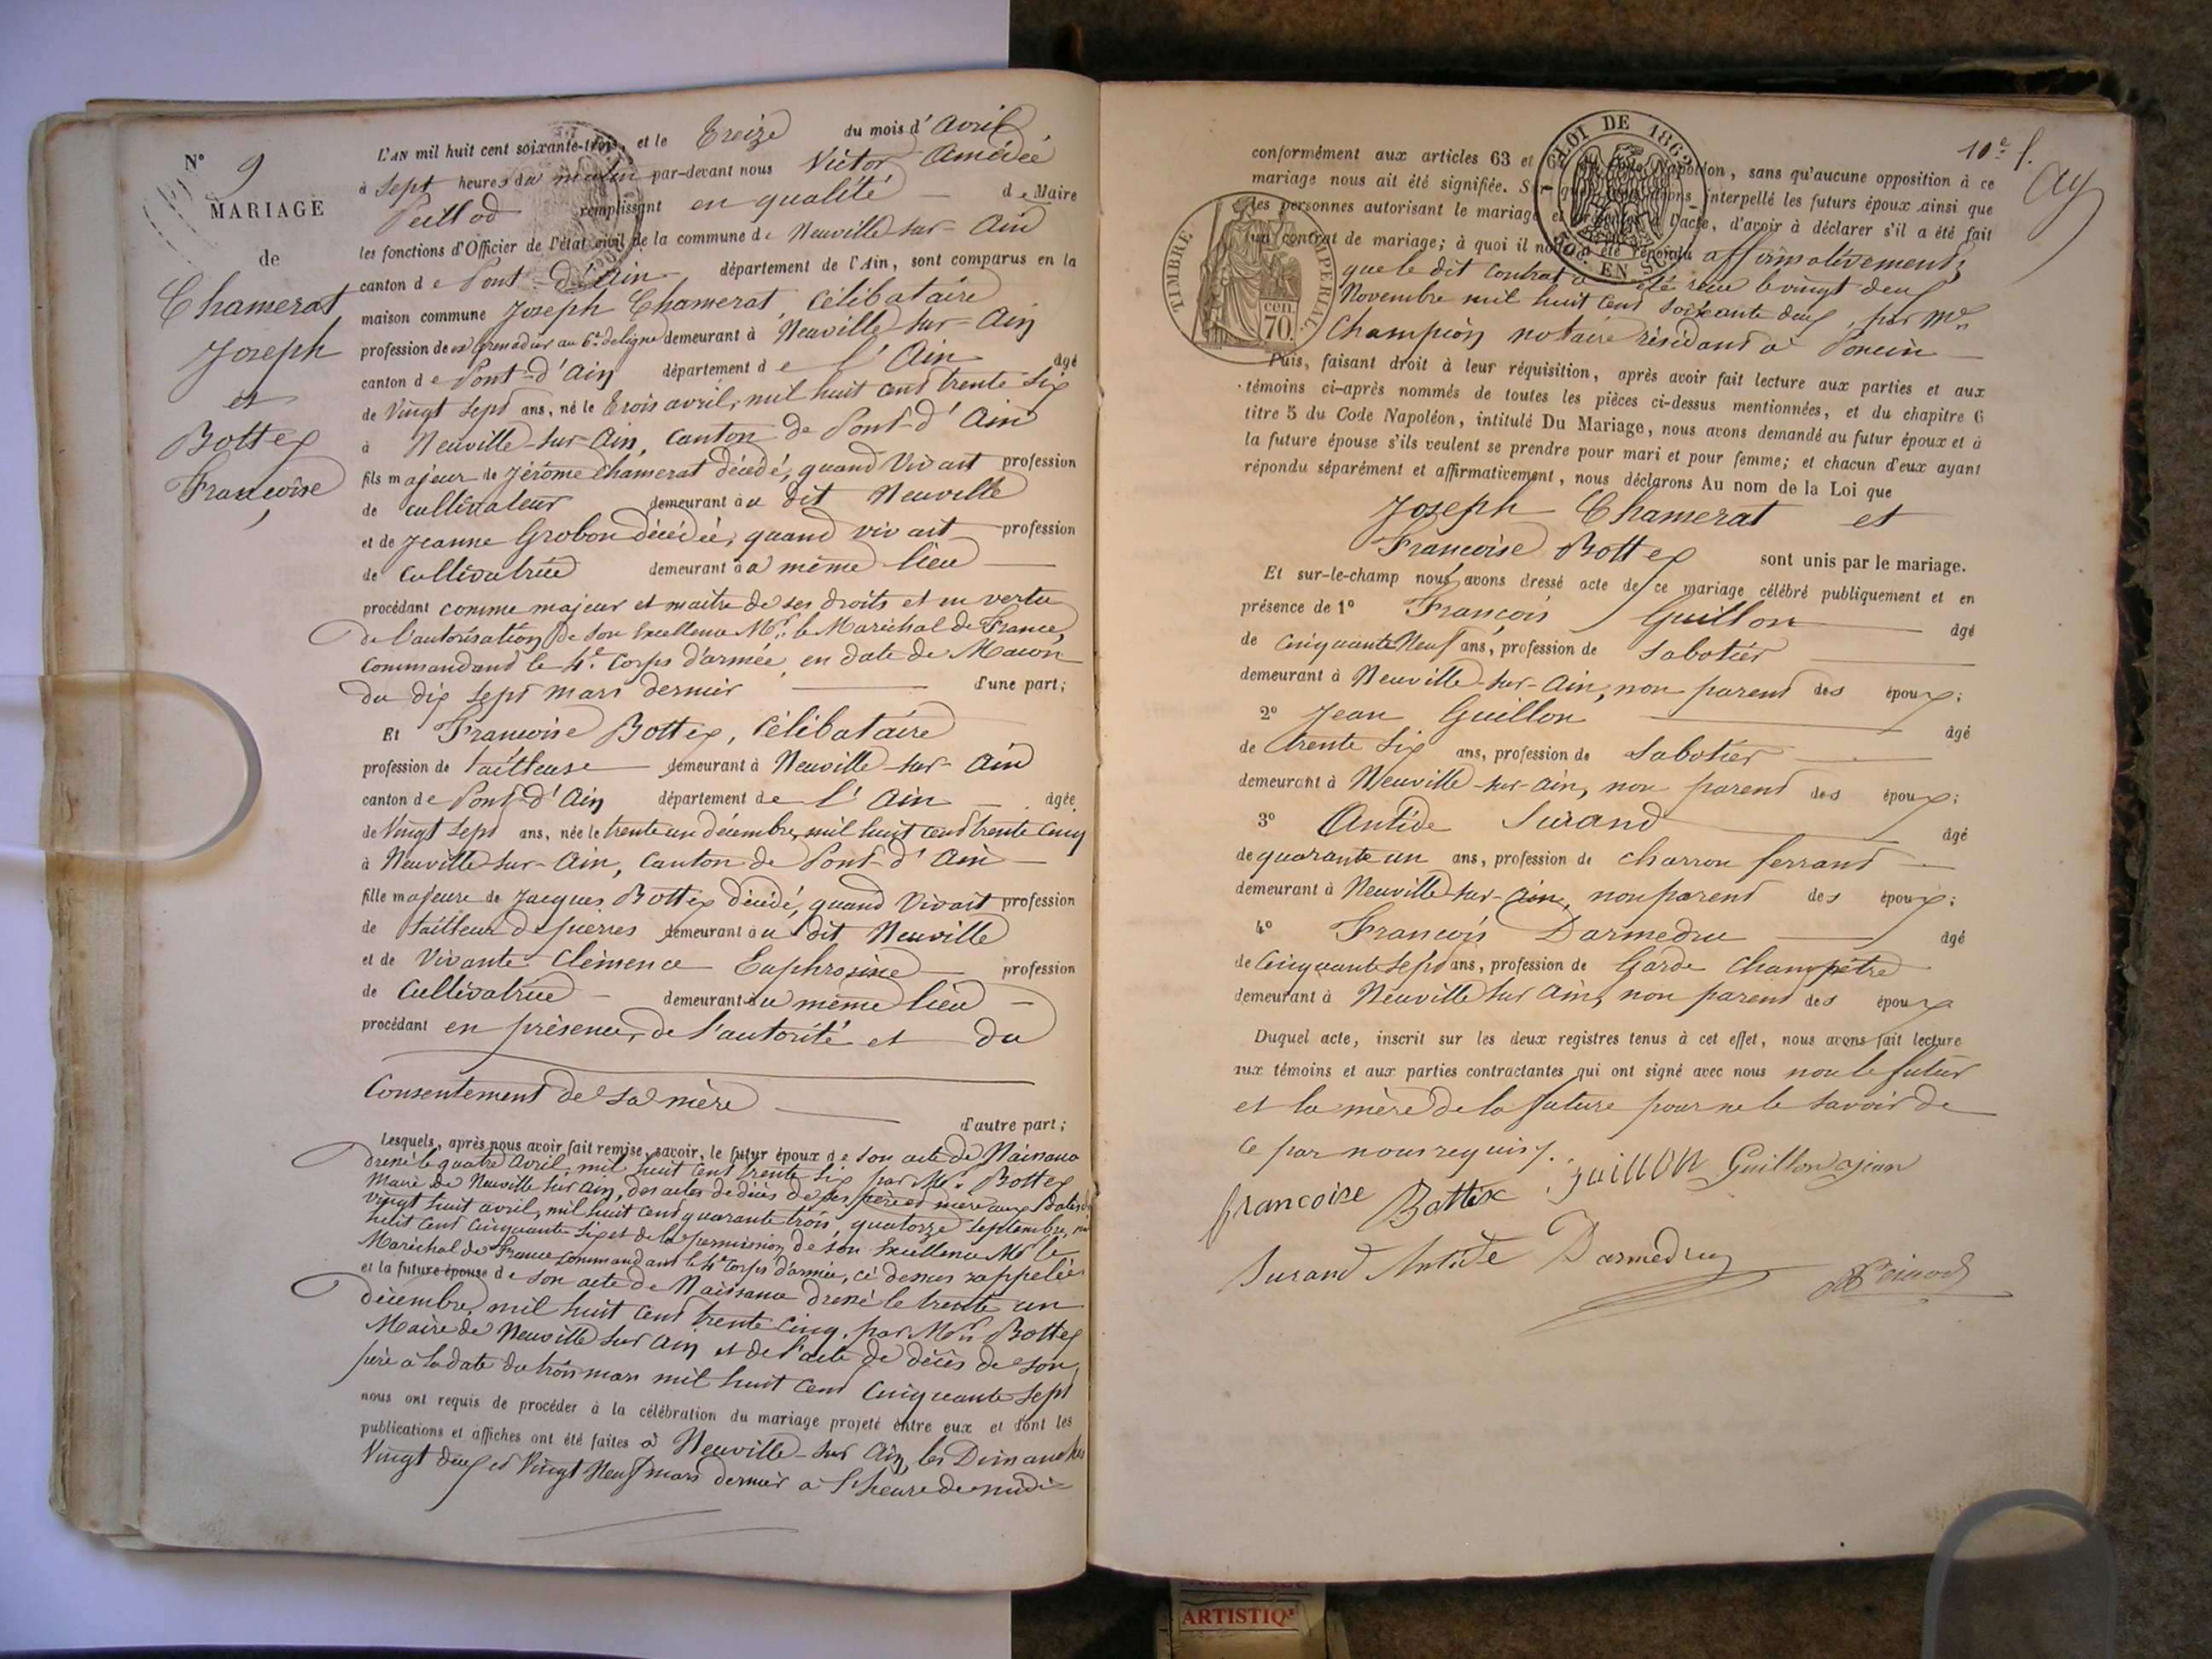 N° 9
MARIAGE
de
Chamerat
Joseph
et
Bottex
Françoise
L'AN mil huit cent soixante-trois, et le Treize du mois d'Avril
à Sept heures du matin par-devant nous Victor Amédée
Peillod remplissant en qualité de Maire
les fonctions d'Officier de l'état civil de la commune de Neuville sur-Ain
canton de Pont-d'Ain, département de l'Ain, sont comparus en la
maison commune Joseph Chamerat, célibataire
profession de ex Grenadier au 6e de ligne demeurant à Neuville sur-Ain
canton de Pont-d'Ain département de l'Ain âgé
de Vingt sept ans, né le trois avril, mil huit cent trente six
à Neuville-sur-Ain, Canton de Pont-d'Ain
fils majeur de Jérôme Chamerat décédé, quand Vivait profession
de cultivateur demeurant au dit Neuville
et de Jeanne Grobon décédée, quand vivait profession
de Cultivatrice demeurant au même lieu
procédant comme majeur et maître de ses droits et en vertu
de l'autorisation de Son Excellence Mr. le Maréchal de France,
Commandand le 4e Corps d'armée, en date de Macon
du dix sept mars dernier d'une part;
Et Françoise Bottex, Célibataire
profession de tailleuse demeurant à Neuville-sur-Ain
canton de Pont-d'Ain département de l'Ain âgée
de Vingt sept ans, née le trente un décembre, mil huit cent trente cinq
à Neuville-sur-Ain, Canton de Pont-d'Ain
fille majeure de Jacques Bottex décédé, quand Vivait profession
de tailleur de pierres demeurant au dit Neuville
et de Vivante Clémence Euphrosine profession
de Cultivatrice demeurant au même lieu
procédant en présence, de l'autorité et du
Consentement de sa mère
d'autre part;
Lesquels, après nous avoir fait remise, savoir, le futur époux de son acte de Naissance
dressé le quatre avril, mil huit cent trente six par Mr. Bottex
Maire de Neuville sur Ain, des actes de décès de ses père et mère aux dates du
vingt huit avril, mil huit cent quarante trois, quatorze septembre, mil
huit cent cinquante six et de la permission de son Excellence Mr le
Maréchal de France commandant le 4e Corps d'armée, ci dessus rappelée
et la future épouse de son acte de Naissance dressé le trente un
décembre, mil huit cent trente cinq, par Mr. Bottex
Maire de Neuville sur Ain et de l'acte de décès de son
père à la date du trois mars mil huit cent cinquante sept
nous ont requis de procéder à la célébration du mariage projeté entre eux et dont les
publications et affiches ont été faites à Neuville-sur Ain, les Dimanches
Vingt deux et Vingt Neuf mars dernier à l'heure de midi
10e f.
LOI DE 1862
2 DE EN SUS
TIMBRE IMPERIAL
70. cen
conformément aux articles 63 et 64 du Code Napoléon, sans qu'aucune opposition à ce
mariage nous ait été signifiée. Sur quoi nous avons interpellé les futurs époux ainsi que
les personnes autorisant le mariage et présentes à l'acte, d'avoir à déclarer s'il a été fait
un contrat de mariage; à quoi il nous a été répondu affirmativement,
que le dit Contrat a été reçu le vingt deux
Novembre mil huit cent soixante deux, par Me
Champion notaire résidant à Poncin
Puis, faisant droit à leur réquisition, après avoir fait lecture aux parties et aux
témoins ci-après nommés de toutes les pièces ci-dessus mentionnées, et du chapitre 6
titre 5 du Code Napoléon, intitulé Du Mariage, nous avons demandé au futur époux et à
la future épouse s'ils veulent se prendre pour mari et pour femme; et chacun d'eux ayant
répondu séparément et affirmativement, nous déclarons Au nom de la Loi que
Joseph Chamerat et
Françoise Bottex sont unis par le mariage.
Et sur-le-champ nous avons dressé acte de ce mariage célébré publiquement et en
présence de 1° François Guillon âgé
de Cinquante Neuf ans, profession de Sabotier
demeurant à Neuville-sur-Ain, non parend des époux;
2° Jean Guillon âgé
de trente six ans, profession de Sabotier
demeurant à Neuville-sur-Ain, non parend des époux;
3° Antide Surand âgé
de quarante un ans, profession de charron ferrant
demeurant à Neuville-sur-Ain, non parend des époux;
4° François Darmedru âgé
de Cinquante sept ans, profession de Garde Champêtre
demeurant à Neuville sur Ain, non parend des époux
Duquel acte, inscrit sur les deux registres tenus à cet effet, nous avons fait lecture
aux témoins et aux parties contractantes qui ont signé avec nous non le futur
et la mère de la future pour ne le savoir de
ce par nous requis.
françoise Bottex Guillon Guillon Jean
Surand Antide Darmedru
ARTISTIQ